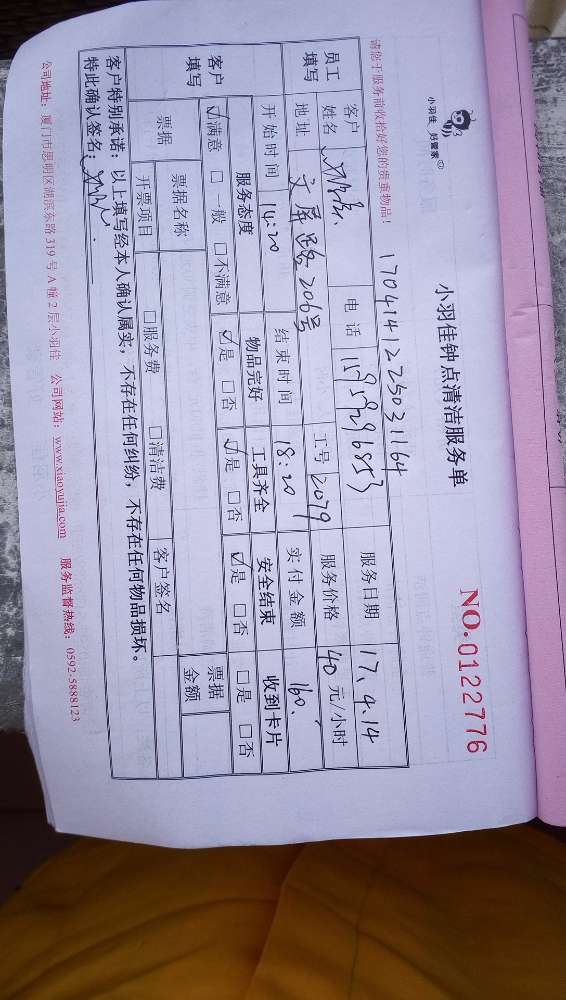 小羽佳 好管家
小羽佳钟点清洁服务单
NO.0122776
请您于服务前收拾好您的贵重物品！
17041412275031164
员工填写
客户姓名
电话 15959296853
服务日期 17、4.14
地址 文屏路206号
工号 2079
服务价格 40 元/小时
开始时间 14:20
结束时间 18:20
实付金额 160.
客户填写
服务态度 物品完好 工具齐全 安全结束 收到卡片
☑满意 □一般 □不满意 ☑是 □否 ☑是 □否 ☑是 □否 □是 □否
票据 票据名称 票据金额
开票项目 □服务费 □清洁费 客户签名
客户特别承诺：以上填写经本人确认属实，不存在任何纠纷，不存在任何物品损坏。
特此确认签名：
公司地址：厦门市思明区湖滨东路319号A幢2层小羽佳 公司网站：www.xiaoyujia.com 服务监督热线：0592-5888123